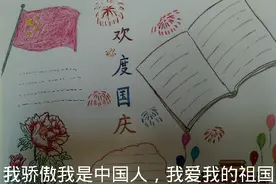 欢度国庆
我骄傲我是中国人，我爱我的祖国